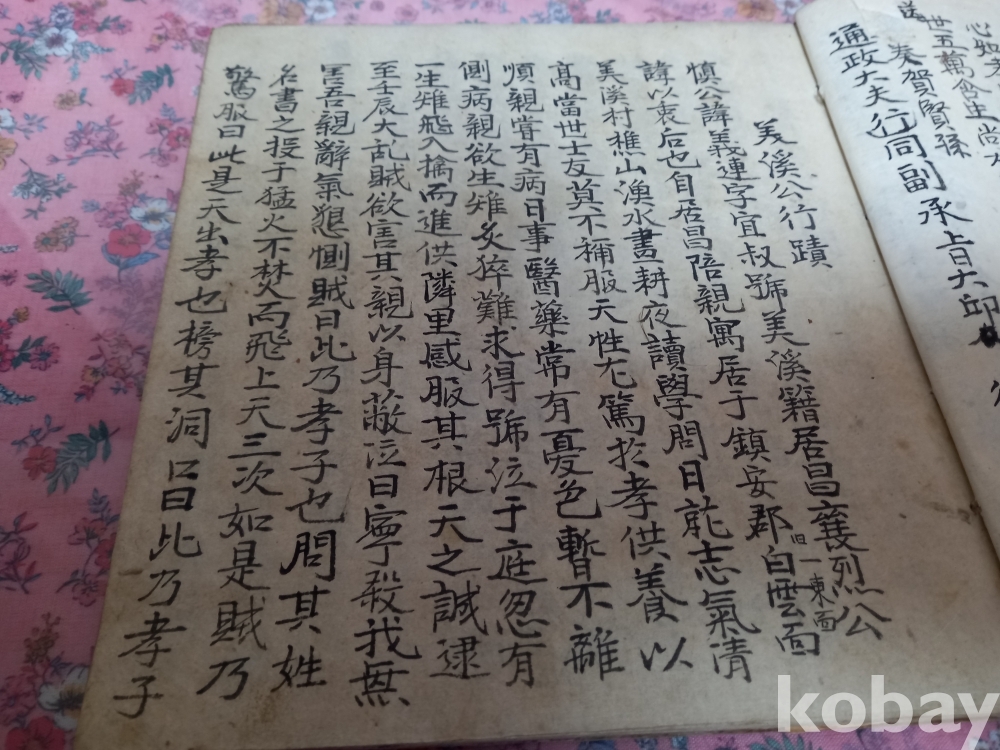 送
世五萬
心
奉賀賢孫
通政大夫行同副承旨大邱
美溪公行蹟
愼公諱義連字宜叔號美溪籍居昌襄烈公
諱以衷后也自居昌陪親寓居于鎭安郡旧一東面白雲面
美溪村樵山漁水晝耕夜讀學問日就志氣清
高當世士友莫不稱服天性尤篤於孝供養以
順親嘗有病日事醫藥常有憂色暫不離
側病親欲生雉炙猝難求得號泣于庭忽有
一生雉飛入擒而進供隣里感服其根天之誠逮
至壬辰大乱賊欲害其親以身蔽泣曰寧殺我無
害吾親辭氣懇惻賊曰此乃孝子也問其姓
名書之投于猛火不焚而飛上天三次如是賊乃
驚服曰此是天出孝也榜其洞口曰此乃孝子
kobay